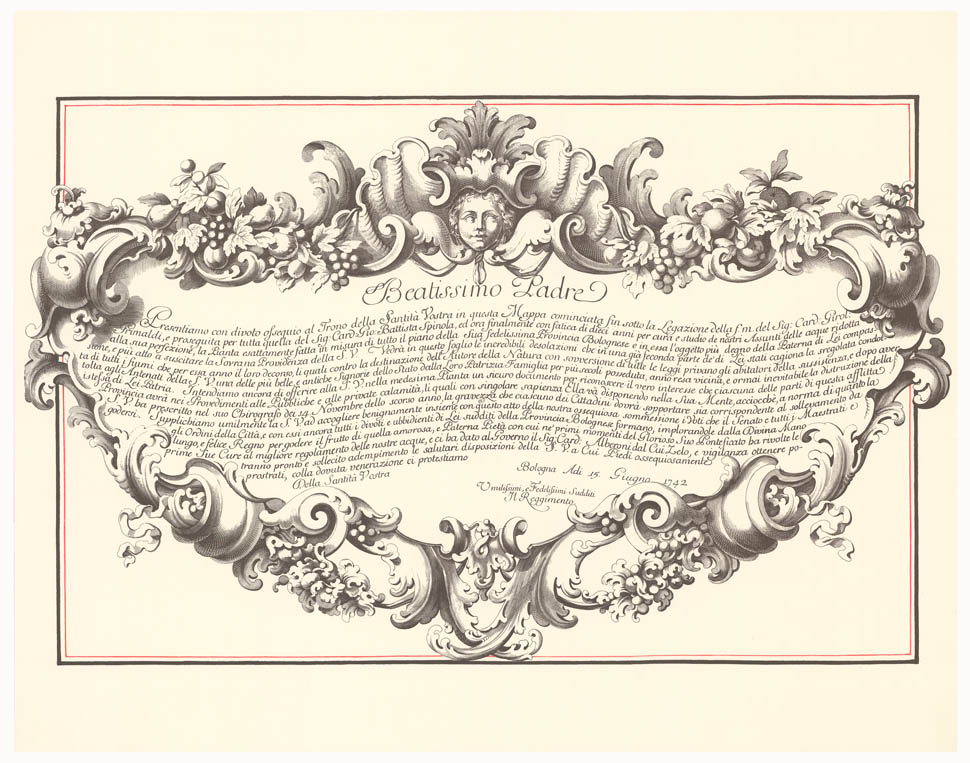 Beatissimo Padre
Presentiamo con divoto ossequio al Trono della Santità Vostra in questa Mappa cominciata fin sotto la Legazione della f. m. del Sig: Card: Girol:
Grimaldi, e proseguita per tutta quella del Sig: Card: Gio: Battista Spinola, ed ora finalmente con fatica di dieci anni per cura e studio de nostri Assunti delle acque ridotta
alla sua perfezione, la Pianta esattamente fatta in misura di tutto il piano della Sua fedelissima Provincia Bolognese e in essa l'oggetto più degno della Paterna di Lei compas-
sione, e più atto a suscitare la Sovrana Provvidenza della S. V. Vedrà in questo foglio le incredibili desolazioni che in una già feconda parte de' di Lei stati cagiona la sregolata condot-
ta di tutti i fiumi che per essa hanno il loro decorso, li quali contro la destinazione dell'Autore della Natura con sovversione di tutte le leggi privano gli abitatori della sussistenza, e dopo aver
tolta agli Antenati della S. V. una delle più belle e antiche Signorie dello Stato dalla Loro Patrizia Famiglia per più secoli posseduta, anno resa vicina, e ormai inevitabile la distruzione della
istessa di Lei Patria. Intendiamo ancora di offerire alla S. V. nella medesima Pianta un sicuro documento per riconoscere il vero interesse che ciascuna delle parti di questa afflitta
Provincia avrà nei Provedimenti alle Pubbliche e alle private calamità, li quali con singolare sapienza Ella và disponendo nella Sua Mente, acciocchè, a norma di quanto la
S. V. ha prescritto nel suo Chirografo dei 14 Novembre dello scorso anno, la gravezza che ciascuno dei Cittadini dovrà sopportare sia corrispondente al sollevamento da
godersi. Supplichiamo umilmente la S. V. ad accogliere benignamente insieme con questo atto della nostra ossequiosa sommessione i Voti che il Senato e tutti i Maestrati e
gli Ordini della Città, e con essi ancora tutti i divoti e ubbidienti di Lei sudditi della Provincia Bolognese formano, implorandole dalla Divina Mano
lungo, e felice Regno per godere il frutto di quella amorosa, e Paterna Pietà con cui ne' primi momenti del Glorioso Suo Pontificato ha rivolte le
prime Sue Cure al migliore regolamento delle nostre acque, e ci ha dato al Governo il Sig. Card: Alberoni dal Cui Zelo, e vigilanza ottenere po-
tranno pronto e sollecito adempimento le salutari disposizioni della S. V. a Cui Piedi ossequiosamente
prostrati, colla dovuta venerazione ci protestiamo
Della Santità Vostra
Bologna Adi 15. Giugno 1742
Umilissimi, e Fedelissimi Sudditi
Il Reggimento